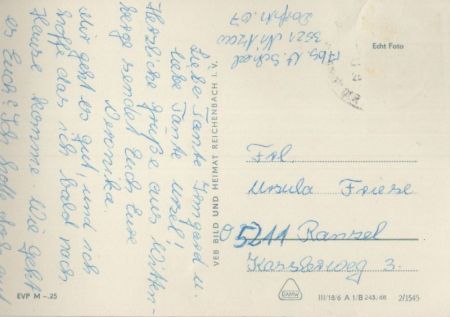 Liebe Tante Irmgard u.
liebe Tante Ursel!
Herzliche Grüße aus Witten-
berge sendet Euch Eure
Veronika.
Mir geht es gut, und ich
hoffe das ich bald nach
Hause komme. Wie geht
es Euch? Ich hoffe
Abs. V. Scheel
3521 Nitzow
Dorfstr. 67
Echt Foto
VEB BILD UND HEIMAT REICHENBACH I. V.
Frl.
Ursula Friese
5211 Ranzel
3.
EVP M –.25
III/18/6 A 1/B 243/68
2/1545